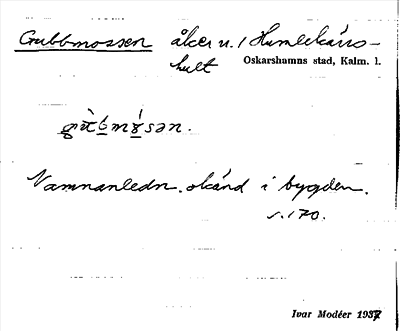 Grubbmossen åker u. / Humlekärrs-
hult Oskarshamns stad, Kalm. l.
Namnanledn. okänd i bygden.
s. 170.
Ivar Modéer 1937